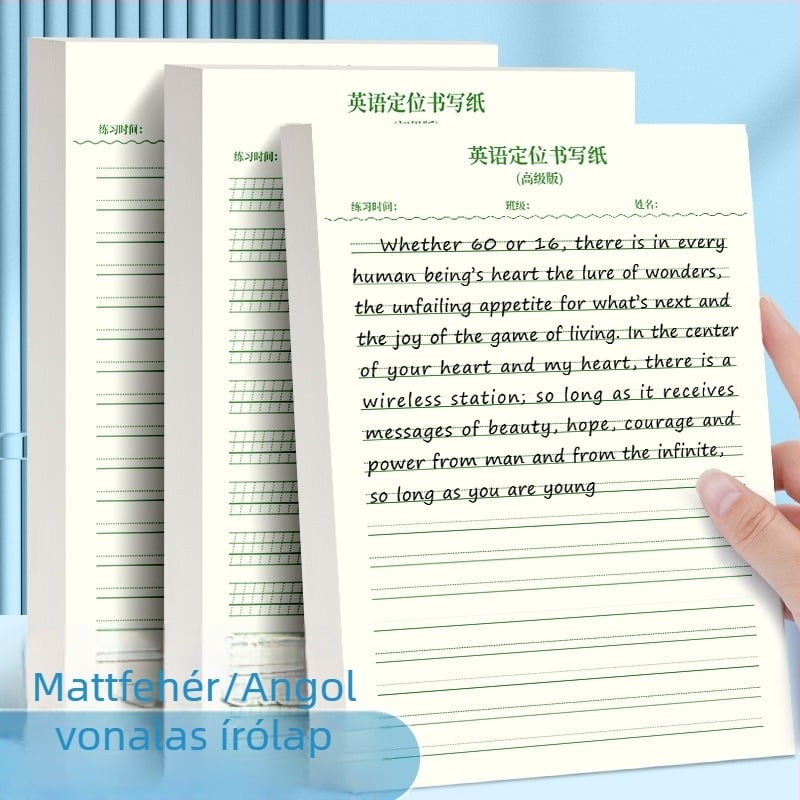 练习时间:
英语定位书写纸
练习时间:
英语定位书写纸
(高级版)
练习时间: 班级: 姓名:
Whether 60 or 16, there is in every
human being's heart the lure of wonders,
the unfailing appetite for what's next and
the joy of the game of living. In the center
of your heart and my heart, there is a
wireless station; so long as it receives
messages of beauty, hope, courage and
power from man and from the infinite,
so long as you are young
Mattfehér/Angol
vonalas írólap